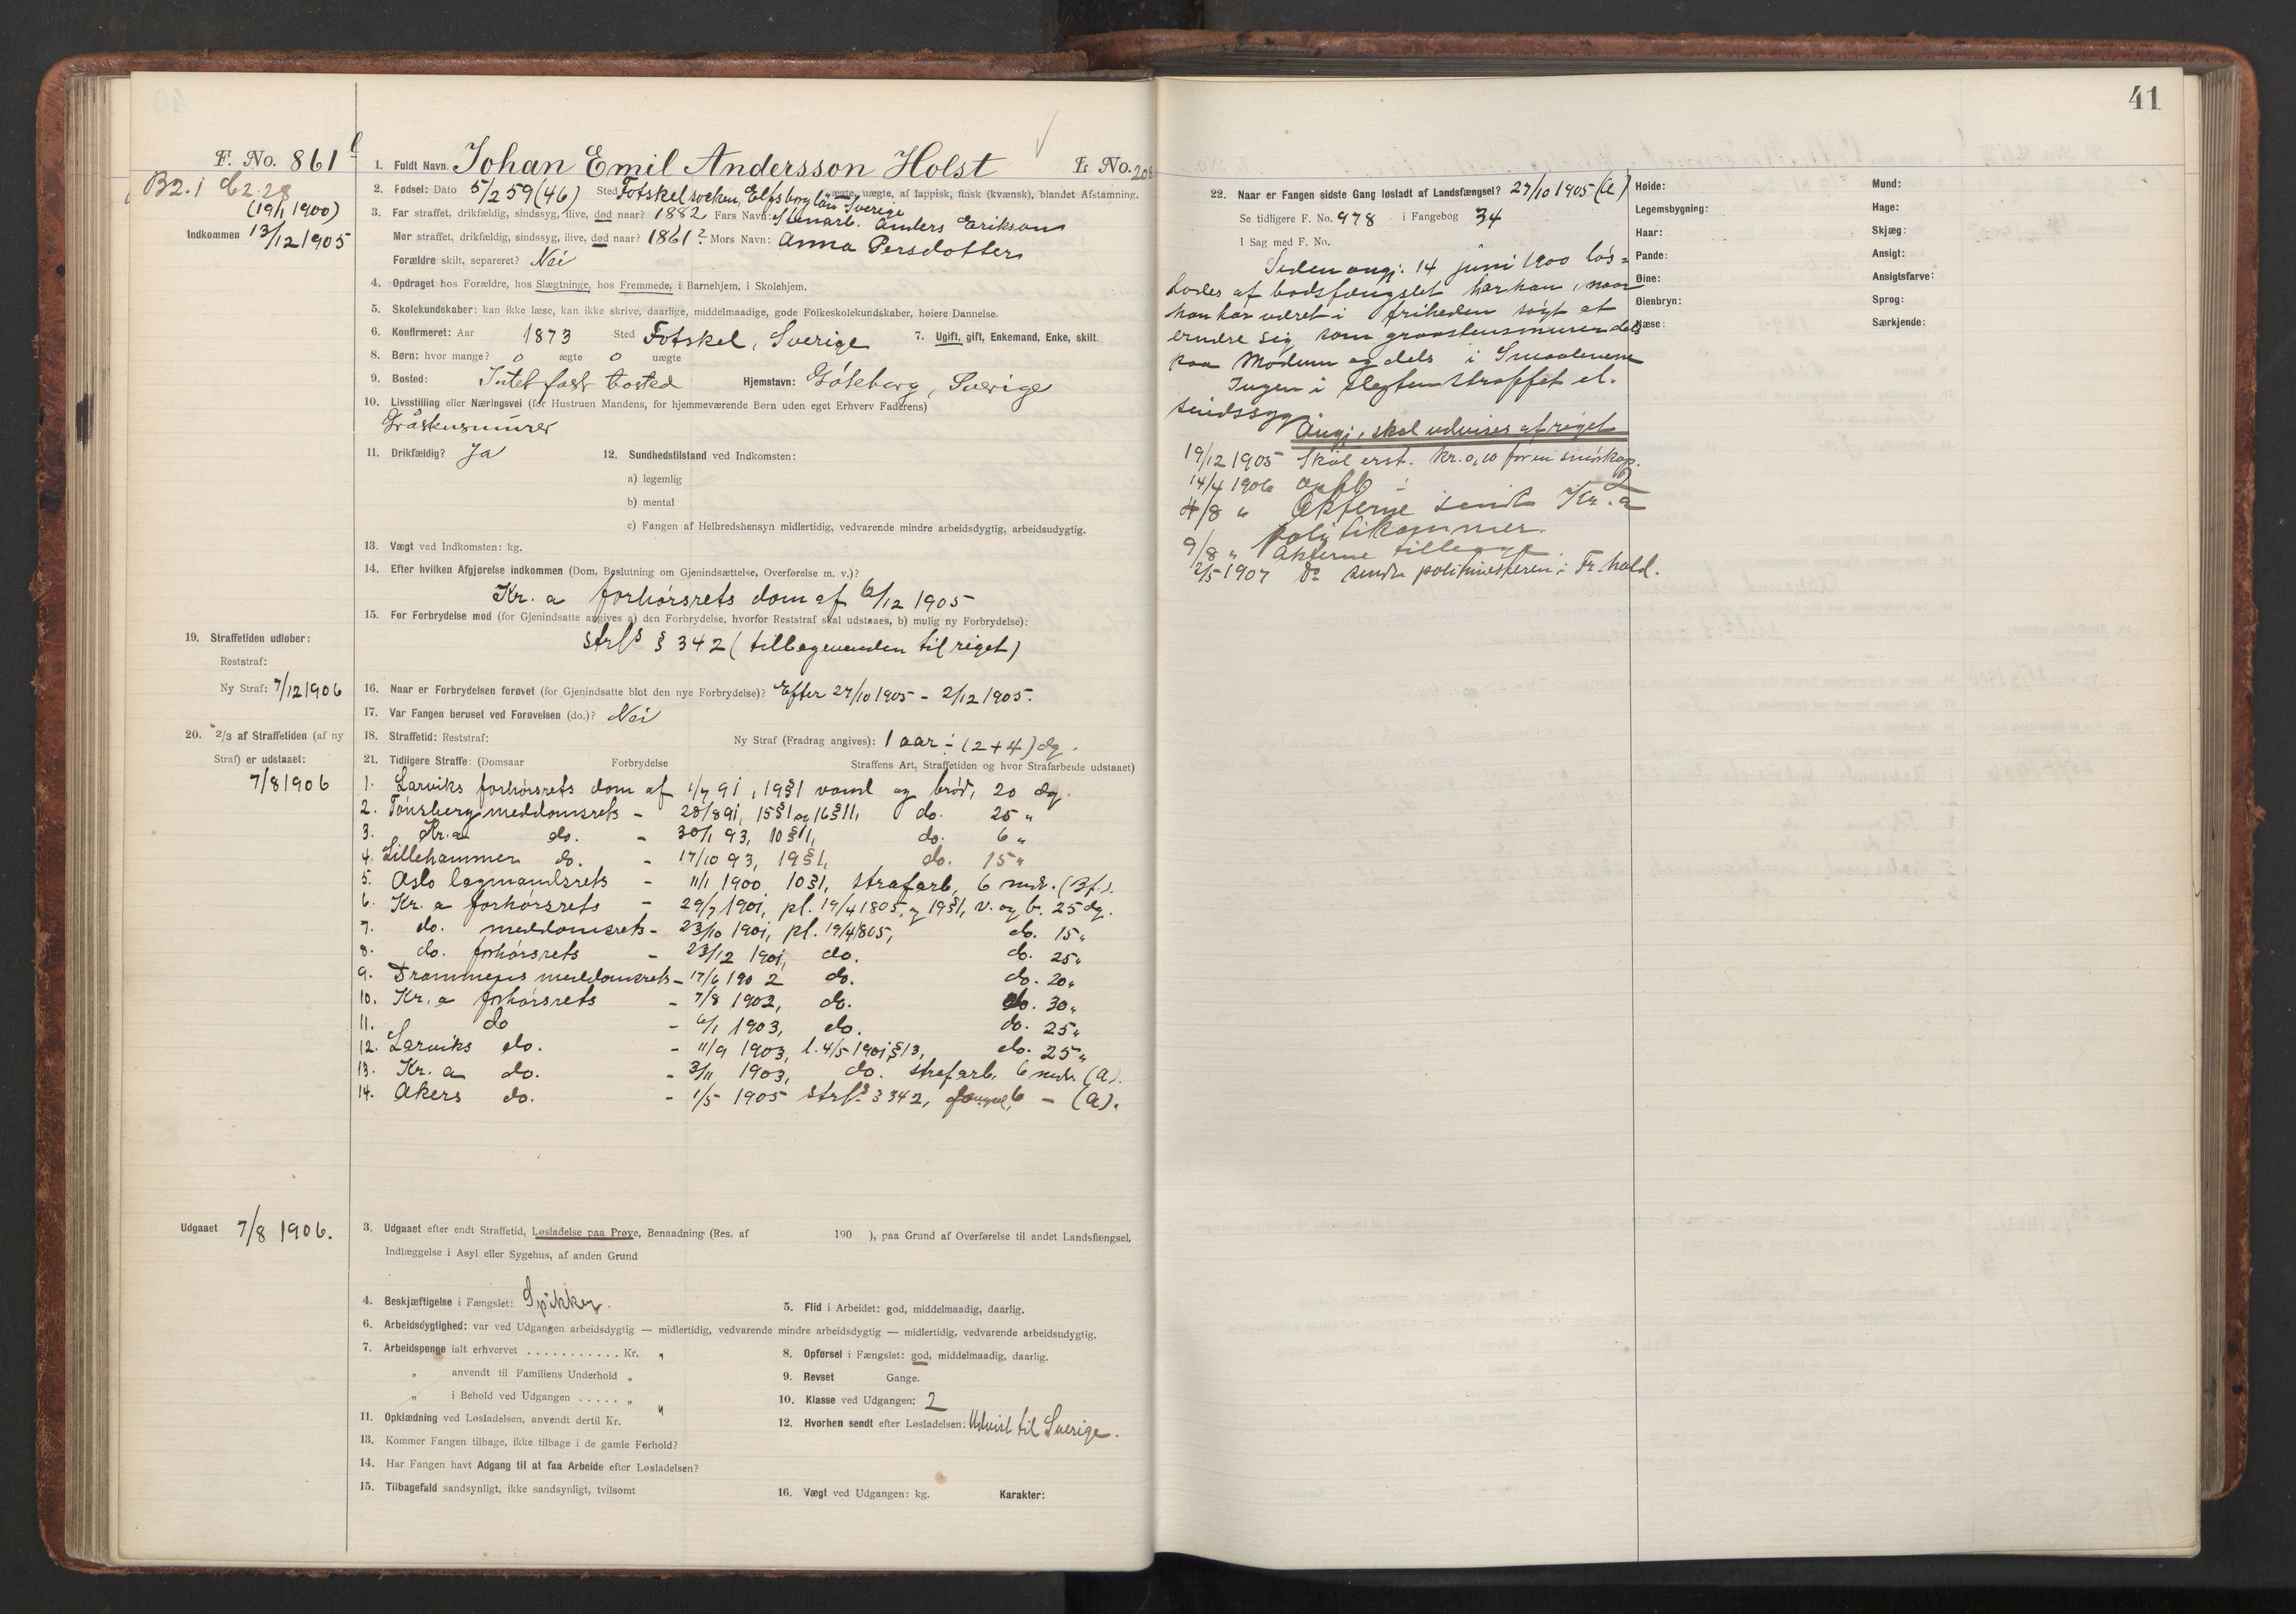 41
F. No. 861 b
B2.1 C2.28
(19/1 1900)
Indkommen 13/12 1905
1. Fuldt Navn. Johan Emil Andersson Holst L. No. 208
2. Fødsel: Dato 5/2 59 (46) Sted Fotskel socken, Elfsborg län Sverige ægte, uægte, af lappisk, finsk (kvænsk), blandet Afstamning.
3. Far straffet, drikfældig, sindssyg, ilive, død naar? 1882 Fars Navn: Stenarb. Anders Erikson
Mor straffet, drikfældig, sindssyg, ilive, død naar? 1861? Mors Navn: Anna Persdotter
Forældre skilt, separeret? Nei
4. Opdraget hos Forældre, hos Slægtninge, hos Fremmede, i Barnehjem, i Skolehjem.
5. Skolekundskaber: kan ikke læse, kan ikke skrive, daarlige, middelmaadige, gode Folkeskolekundskaber, høiere Dannelse.
6. Konfirmeret: Aar 1873 Sted Fotskel, Sverige 7. Ugift, gift, Enkemand, Enke, skilt.
8. Børn: hvor mange? 0 ægte 0 uægte
9. Bosted: Intet fast bosted Hjemstavn: Göteborg, Sverige
10. Livsstilling eller Næringsvei (for Hustruen Mandens, for hjemmeværende Børn uden eget Erhverv Faderens)
Gråstensmurer
11. Drikfældig? Ja 12. Sundhedstilstand ved Indkomsten:
a) legemlig
b) mental
c) Fangen af Helbredshensyn midlertidig, vedvarende mindre arbeidsdygtig, arbeidsudygtig.
13. Vægt ved Indkomsten: kg.
14. Efter hvilken Afgjørelse indkommen (Dom, Beslutning om Gjenindsættelse, Overførelse m. v.)?
Kr.a forhørsrets dom af 6/12 1905
15. For Forbrydelse mod (for Gjenindsatte angives a) den Forbrydelse, hvorfor Reststraf skal udstaaes, b) mulig ny Forbrydelse):
strfl. § 342 (tilbagevenden til riget)
19. Straffetiden udløber:
Reststraf:
Ny Straf: 7/12 1906
16. Naar er Forbrydelsen forøvet (for Gjenindsatte blot den nye Forbrydelse)? Efter 27/10 1905 - 2/12 1905.
17. Var Fangen beruset ved Forøvelsen (do.)? Nei
20. 2/3 af Straffetiden (af ny
Straf) er udstaaet:
7/8 1906
18. Straffetid: Reststraf: Ny Straf (Fradrag angives): 1 aar ÷ (2+4) dg.
21. Tidligere Straffe: (Domsaar Forbrydelse Straffens Art, Straffetiden og hvor Strafarbeide udstaaet)
1. Larviks forhørsrets dom af 1/7 91, 19§1 vand og brød, 20 dg.
2. Tønsberg meddomsrets - 28/8 91, 15§1 og 16§11, do. 25 "
3. Kr.a do. - 30/1 93, 10§1, do. 6 "
4. Lillehammer do. - 17/10 93, 19§1, do. 15 "
5. Oslo lagmandsrets - 11/1 1900, 10§1, strafarb, 6 mdr. (Bf.).
6. Kr.a forhørsrets - 29/7 1901, pl. 19/4 1805, og 19§1, v. og b. 25 dg.
7. do. meddomsrets - 23/10 1901, pl. 19/4 1805, do. 15 "
8. do. forhørsrets - 23/12 1901, do. do. 25 "
9. Drammens meddomsrets - 17/6 1902 do. do. 20 "
10. Kr.a forhørsrets - 7/8 1902, do. do. 30 "
11. do - 6/1 1903, do. do. 25 "
12. Larviks do. - 11/9 1903, l. 4/5 1901 § 13, do. 25 "
13. Kr.a do. - 3/11 1903, do. strafarb. 6 mdr. (A).
14. Akers do. - 1/5 1905 strfl. § 342, fængsel, 6 - (A).
Udgaaet 7/8 1906.
3. Udgaaet efter endt Straffetid, Løsladelse paa Prøve, Benaadning (Res. af 190 ), paa Grund af Overførelse til andet Landsfængsel,
Indlæggelse i Asyl eller Sygehus, af anden Grund
4. Beskjæftigelse i Fængslet: Spikker. 5. Flid i Arbeidet: god, middelmaadig, daarlig.
6. Arbeidsdygtighed: var ved Udgangen arbeidsdygtig — midlertidig, vedvarende mindre arbeidsdygtig — midlertidig, vedvarende arbeidsudygtig.
7. Arbeidspenge ialt erhvervet . . . . . . . . . . . Kr. " 8. Opførsel i Fængslet: god, middelmaadig, daarlig.
" anvendt til Familiens Underhold " 9. Revset Gange.
" i Behold ved Udgangen . . . . . " 10. Klasse ved Udgangen: 2
11. Opklædning ved Løsladelsen, anvendt dertil Kr. " 12. Hvorhen sendt efter Løsladelsen: Udvist til Sverige.
13. Kommer Fangen tilbage, ikke tilbage i de gamle Forhold?
14. Har Fangen havt Adgang til at faa Arbeide efter Løsladelsen?
15. Tilbagefald sandsynligt, ikke sandsynligt, tvilsomt 16. Vægt ved Udgangen: kg. Karakter:
22. Naar er Fangen sidste Gang løsladt af Landsfængsel? 27/10 1905 (A)
Se tidligere F. No. 978 i Fangebog 34
I Sag med F. No.
Siden angj. 14 juni 1900 løs-
lodes af bodsfængslet har han, naar
han har været i friheden søgt at
ernære sig som graastensmurer dels
paa Modum og dels i Smaalenene
Ingen i slegten straffet el.
sindssyg
Angj. skal udvises af riget
19/12 1905 Skal erst. Kr. 0,10 for en
14/4 1906
4/8 " Akterne sendt Kr.a
politikammer.
9/8 " Akterne tillagt
2/5 1907 Do sendt politimesteren i Fr.hald.
Høide: Mund:
Legemsbygning: Hage:
Haar: Skjæg:
Pande: Ansigt:
Øine: Ansigtsfarve:
Øienbryn: Sprog:
Næse: Særkjende: